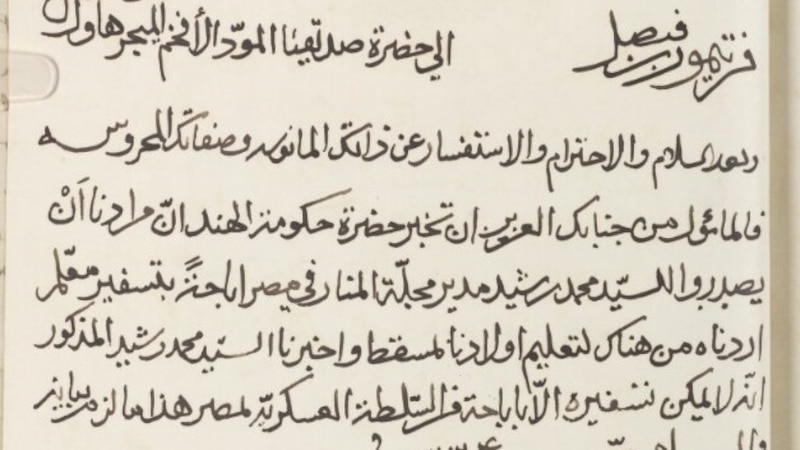 من تيمور بن فيصل
الي حضرة صديقنا المودّ الأفخم الميجر هاورل
وبعد السلام والاحترام والاستفسار عن ذاتك المانوسه وصفاتك المحروسه
فالمامٔول من جنابك العزيز ان تخبر حضرة حكومة الهند انّ مرادنا اَنْ
يصدروا للسيّد محمد رشيد مدير مجلّة المنار في مصر اباحةً بتسفير معلّم
اردناه من هناك لتعليم اولادنا لمسقط واخبرنا السيّد محمد رشيد المذكور
انّه لا يمكن تسفيره الّا باباحة من السّلطة العسكريّة بمصر هذا ما لزم بيانه